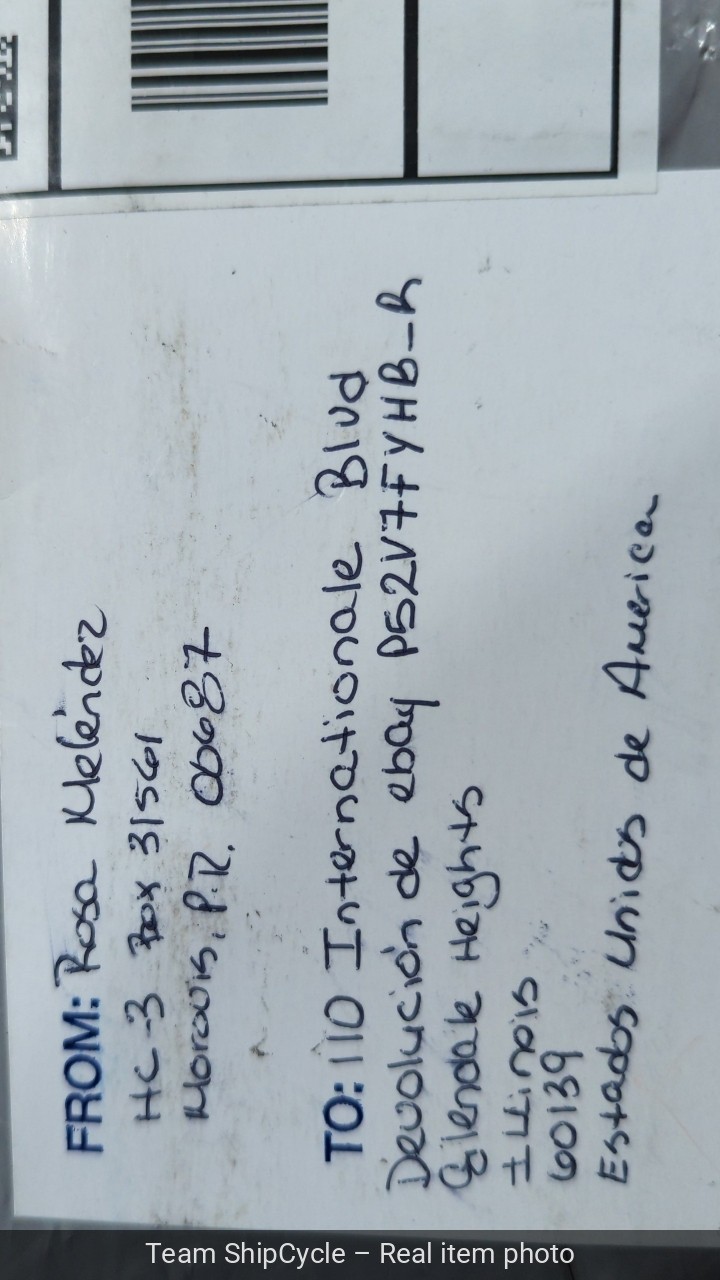 FROM: Rosa Meléndez
HC-3 Box 31561
Morovis, P.R. 00687
TO: 110 Internationale Blvd
Devolución de ebay P52V7FYHB-R
Glendale Heights
ILLinois
60139
Estados Unidos de America
Team ShipCycle – Real item photo